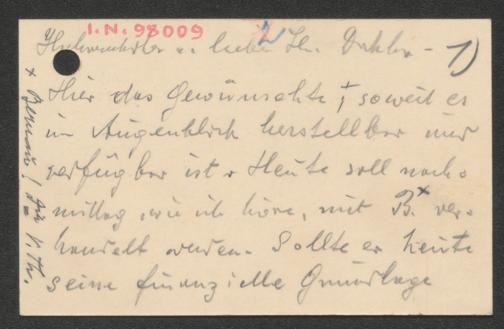 I.N. 98009
2
1)
Hochverehrter u. lieber Hr. Doktor –
Hier das Gewünschte, soweit es
im Augenblick herstellbar und
verfügbar ist. Heute soll nach-
mittag, wie ich höre, mit B.× ver-
handelt werden. Sollte er heute
seine finanzielle Grundlage
× Bernau!